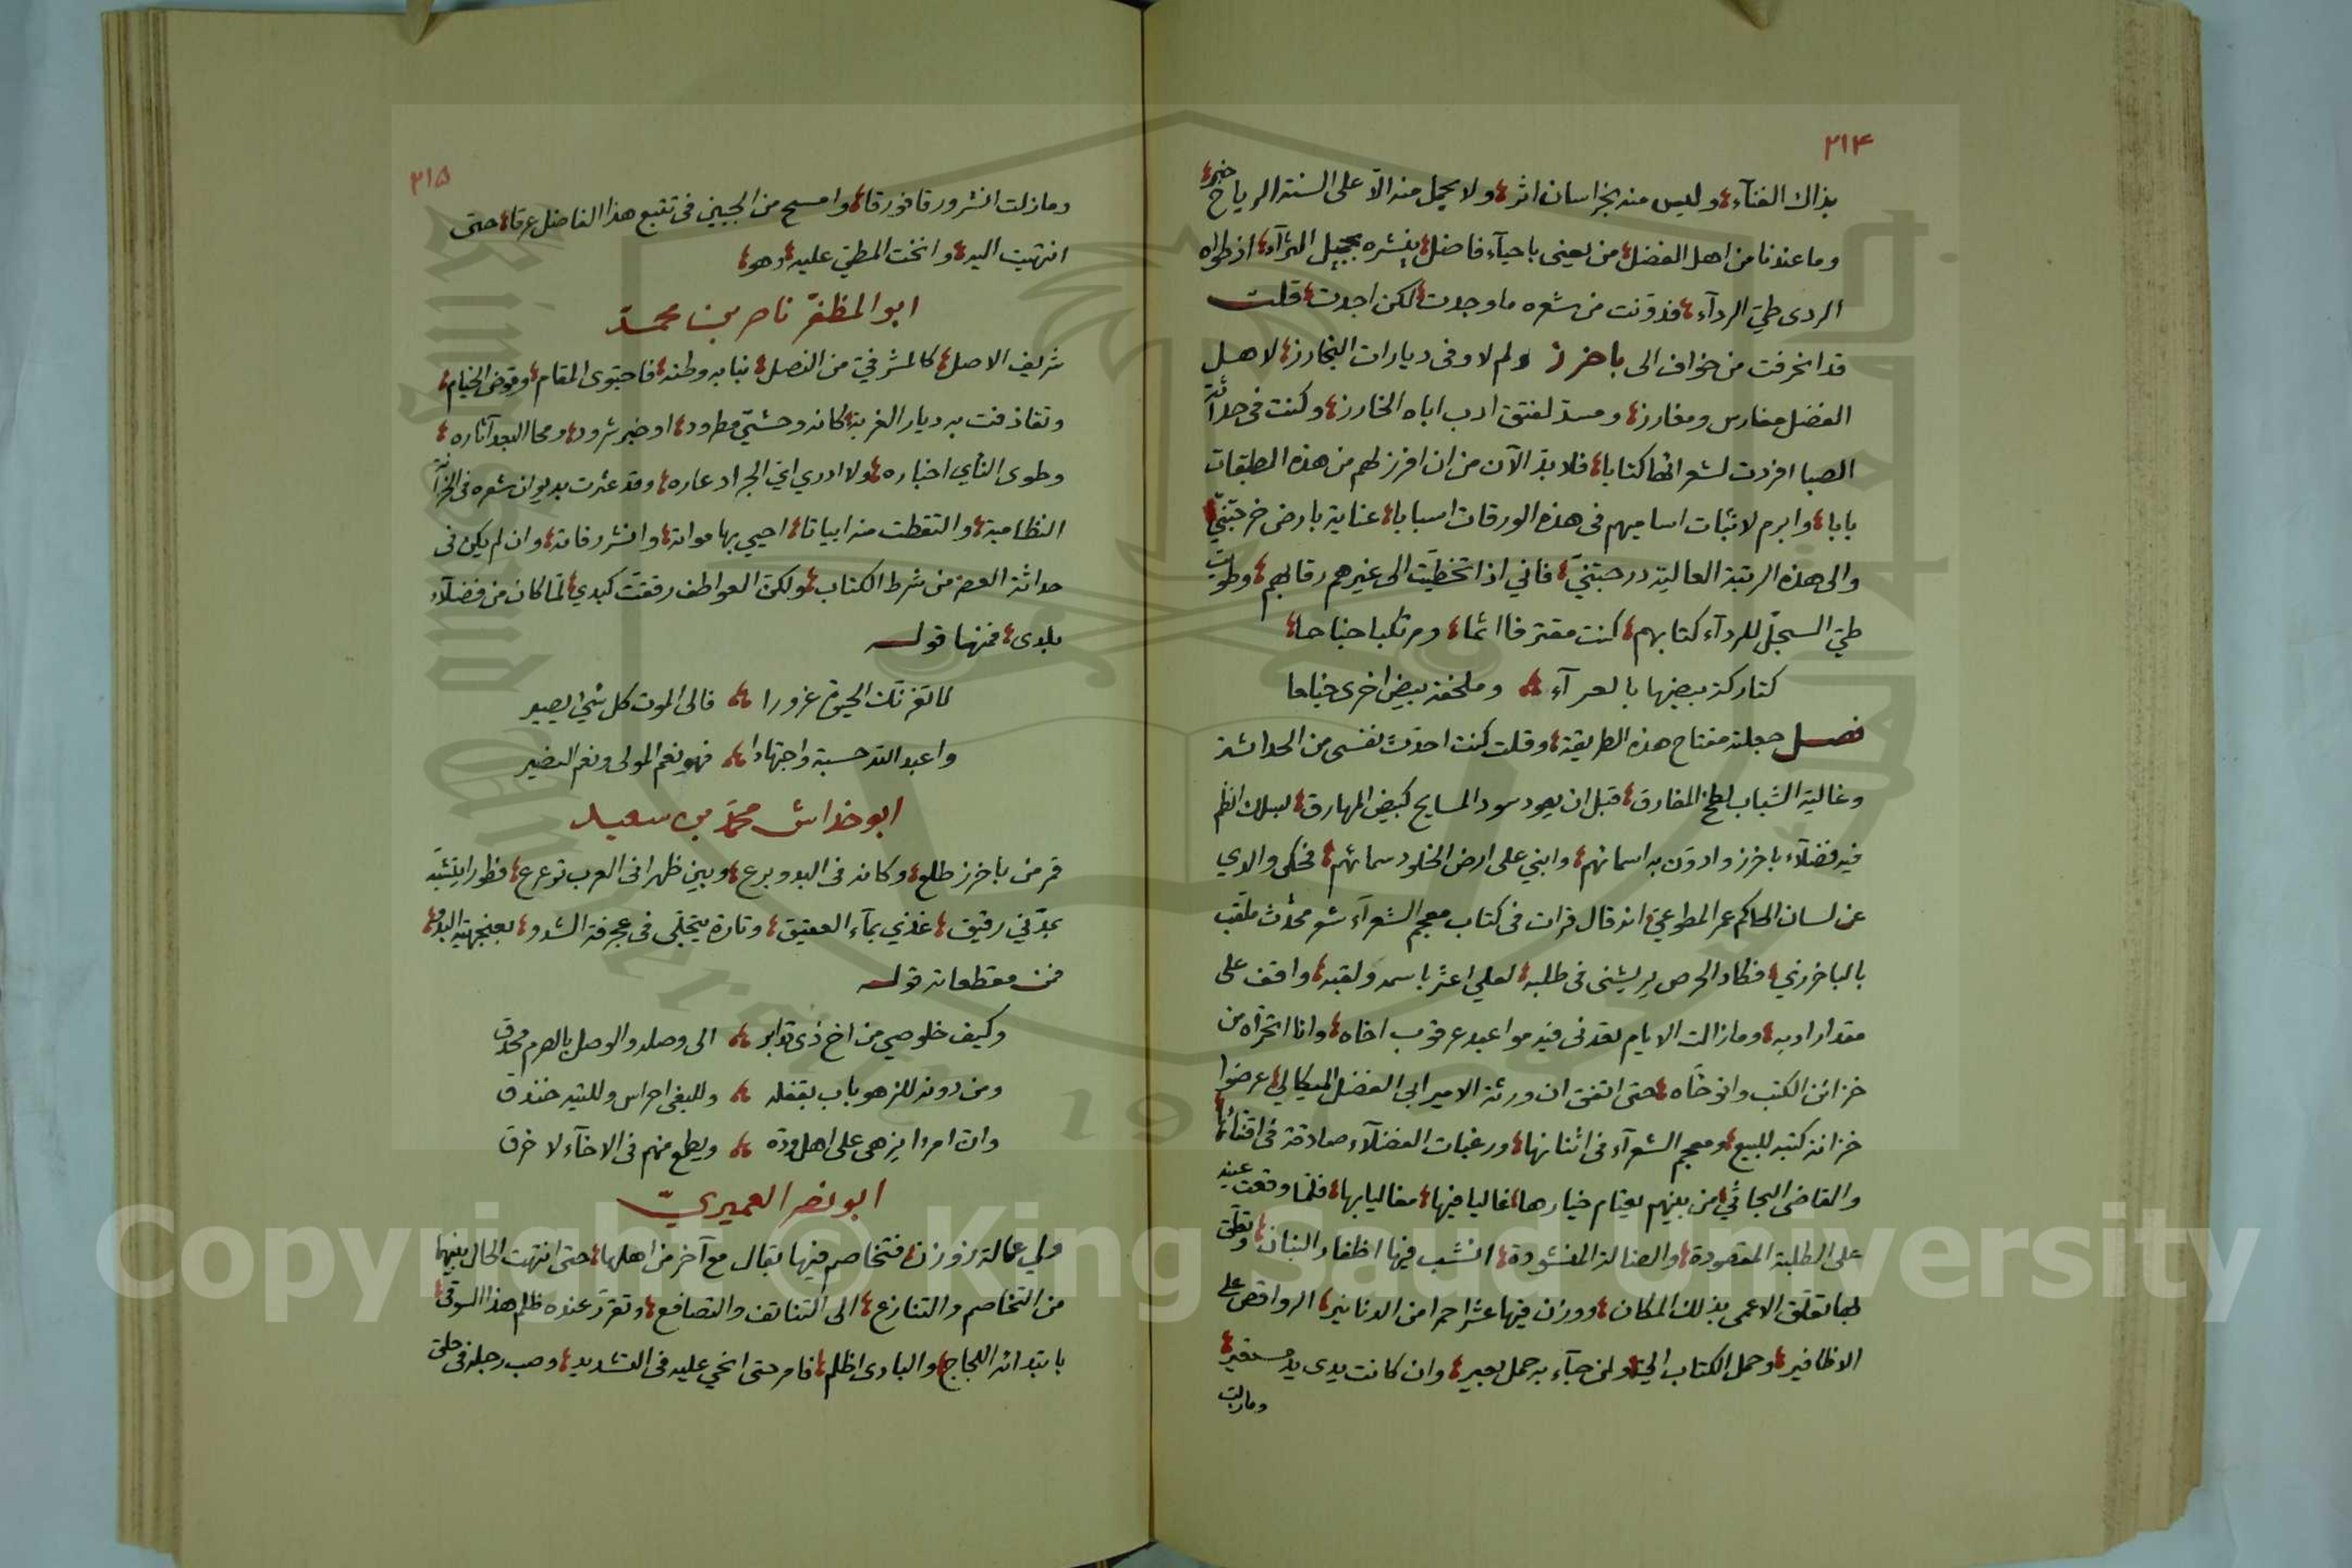 ٢١٤
بذاك الفنآء، وليس منه بخراسان اثر، ولا يحمل منه الّا على السنة الرياح خبر،
وما عندنا من اهل الفضل، من يعنى باحيآء فاضل، ينشره بجميل الثرآء، اذ طواه
الردى طيّ الردآء، فدوّنت من شعره ما وجدت، لكن اجدت، قلت
قد انحرفت من خواف الى باخرز ولم لا وفى ديارات النخارز، لاهل
الفضل مغارس ومغارز، ومسدّ لفتوق ادب اباه الخارز، وكنت فى حداثة
الصبا افردت لشعرائها كتابا، فلا بدّ الآن من ان افرز لهم من هذه الطبقات
بابا، وابرم لاثبات اساميهم فى هذه الورقات اسبابا، عناية بارض خرّجتنيّ
والى هذه الرتبة العالية درجتنيّ، فاني اذا تخطّيت الى غيرهم رقابهم، وطويت
طيّ السجلّ للردآء كتابهم، كنت مقترفا اثما، ومرتكبا جناحا،
كتاركة بيضها بالعرآء، وملحفة بيض اخرى جناحا
فصل جعلته مفتاح هذه الطريقة، وقلت كنت احدّث نفسى من الحداثة
وغالية الشباب لطخ المفارق، قبل ان يعود سود المسايح كبيض المهارق، لسلك انظم
فيه فضلآء باخرز وادوّن به اسمائهم، وابني على ارض الخلود سمائهم، فحكى والدي
عن لسان الحاكم عمر المطوعيّ، انه قال قرات فى كتاب معجم الشعرآء شعر محدّث ملقب
بالباخرزي، فكاد الحرص يريشنى فى طلبه، لعلي اعثر باسمه ولقبه، واقف على
مقدار ادبه، وما زالت الايام تعدنى فيه مواعيد عرقوب اخاه، وانا اتحرّاه من
خزائن الكتب واتوخّاه، حتى اتفق ان ورثة الامير ابى الفضل الميكالي، عرضوا
خزانة كتبه للبيع، ومعجم الشعرآء فى اثنائها، ورغبات الفضلآء صادقة فى اقتنائها
والقاضى البحاثيّ، من بينهم يعتام خيارها، غاليا فيها، مغاليا بها، فلما وقعت عينه
على الطلبة المقصودة، والضالة المنشودة، انشب فيها اظفار البنان، وتعلّق
بها تعلّق الاعمى بذلك المكان، ووزن فيها عشرا حمرا من الدنانير، الرواقص على
الاظافير، وحمل الكتاب اليّ، ولمن جآء به حمل بعير، وان كانت يدى يد فقير،
ومازلت
٢١٥
ومازلت انشر ورقا فورقا، وامسح من الجبين فى تتبع هذا الفاضل عرقا، حتى
انتهيت اليه، وانخت المطيّ عليه، وهو،
ابو المظفّر ناصر بن محمد
شريف الاصل، كالمشرفيّ من النصل، نبا به وطنه، فاجتوى المقام، وقوّض الخيام،
وتقاذفت به ديار الغربة، كانه وحشيّ مطرود، او خبر شرود، ومحا البعد آثاره،
وطوى النأي اخباره، ولا ادري ايّ الجراد عاره، وقد عثرت بديوان شعره فى الخزانة
النظامية، والتقطت منه ابياتا، احيي بها مواته، وانشر رفاته، وان لم يكن فى
حداثة العصر من شرط الكتاب، ولكنّ العواطف رققت كبدي، لما كان من فضلآء
بلدى، فمنها قوله
لا تغرنّك الحيوة غرورا، فالى الموت كل شيئ يصير
واعبد الله حسبة واجتهادا، فهو نعم المولى ونعم النصير
ابو خداش محمد بن سعيد
قمر من باخرز طلع، وكانه فى البدو برع، وبين ظهرانى العرب ترعرع، فطورا يتشبّه
بمدنيّ رقيق، غذي بمآء العقيق، وتارة يتجلّى فى عجرفة الشدو، بعنجهية البدو،
فمن مقطعاته قوله
وكيف خلوصي من اخ ذى تدابر، الى وصله والوصل بالصرم محدق
ومن دونه للزهو باب بقفله، وللبغى احراس وللتيه خندق
وان امرءا يزهى على اهل ودّه، ويطمع منهم فى الاخآء لاخرق
ابو نصر العميريّ
ولي عمالة زوزن، فتخاصم فيها بقال مع آخر من اهلها، حتى انتهت الحال بينهما
من التخاصم والتنازع، الى التناتف والتصافع، وتقرّر عنده ظلم هذا السوقى،
بابتدائه اللجاج، والبادى اظلم، فامر حتى انحي عليه فى التشديد، وصب رجله فى حلق